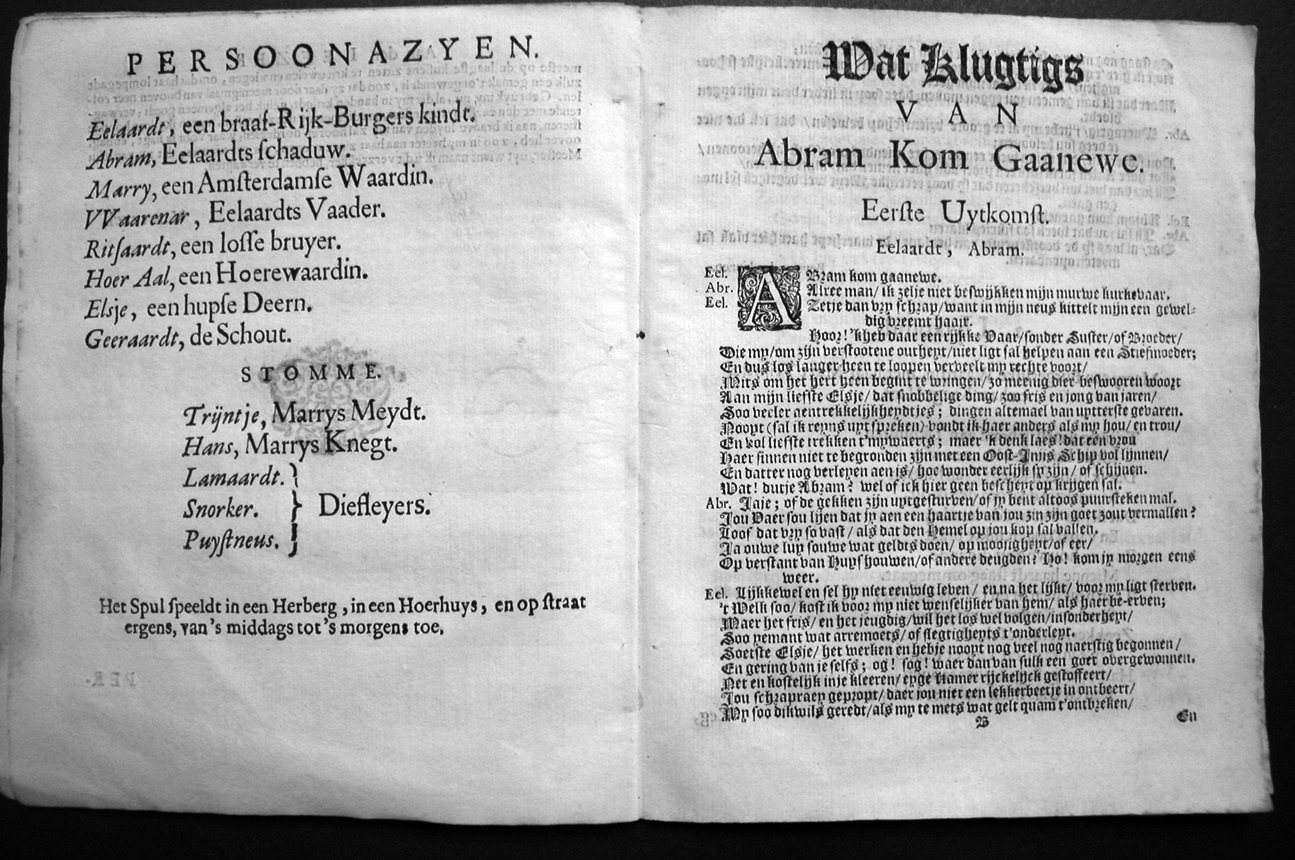 PERSOONAZYEN.
Eelaardt, een braaf-Rijk-Burgers kindt.
Abram, Eelaardts schaduw.
Marry, een Amsterdamse Waardin.
VVaarenar, Eelaardts Vaader.
Ritsaardt, een losse bruyer.
Hoer Aal, een Hoerewaardin.
Elsje, een hupse Deern.
Geeraardt, de Schout.
STOMME.
Trijntje, Marrys Meydt.
Hans, Marrys Knegt.
Lamaardt.
Snorker. } Diefleyers.
Puystneus.
Het Spul speeldt in een Herberg, in een Hoerhuys, en op straat
ergens, van's middags tot's morgens toe.
Wat Klugtigs
VAN
Abram Kom Gaanewe.
Eerste Uytkomst.
Eelaardt, Abram.
Eel. ABram kom gaanewe.
Abr. Alree man/ ik zelje niet beswijkken mijn murwe kurkevaar.
Eel. Zetje dan vry schrap/ want in mijn neus kittelt mijn een gewel-
dig vreemt haair.
Hoor! 'k heb daar een rijkke Vaar/ sonder Suster/ of Broeder/
Die my/ om zijn verstootene outheyt/ niet ligt sal helpen aan een Stiefmoeder;
En dus los langer heen te loopen verveelt my rechte voort/
Mits om het hert heen begint te wringen/ zo meenig dier beswooren woort
Aan mijn liefste Elsje/ dat snobbelige ding/ zoo fris en jong van jaren/
Soo veeler aentrekkelijkheydtjes; dingen altemael van uytterste gevaren.
Nooyt (sal ik reyns uyt spreken) vondt ik haer anders als my hou/ en trou/
En vol liefste trekken t'mywaerts; maer 'k denk laes! dat een vrou
Haer sinnen niet te begronden zijn met een Oost-Indis Schip vol lijnnen/
En datter nog verleyen aen is/ hoe wonder eerlijk sy zijn/ of schijnen.
Wat! dutje Abram? wel of ick hier geen bescheyt op krijgen sal.
Abr. Jaje; of de gekken zijn uytgesturven/ of jy bent altoos puursteken mal.
Jou Vaer sou lijen dat jy aen een haartje van jou zin zijn goet zout vermallen?
Loof dat vry so vast/ als dat den Hemel op jou kop sal vallen.
Ja ouwe luy souwe wat geldts doen/ op moojigheyt/ of eer/
Op verstant van Huys houwen/ of andere deugden? Ho! kom jy morgen eens
weer.
Eel. Lijkkewel en sel hy niet eeuwig leven/ en na het lijkt/ voor my ligt sterven.
't Welk soo/ kost ik voor my niet wenselijker van hem/ als haer be-erven;
Waer het fris/ en het jeugdig/ wil het los wel volgen/ insonderheyt/
Soo yemant wat arremoets/ of slegtigheyts t'onderleyt.
Soetste Elsje/ het werken en hebje nooyt nog veel nog naerstig begonnen/
En gering van je selfs; og! sog! waer dan van sulk een goet overgewonnen.
Net en kostelijk in je kleeren/ eyge Kamer rijckelijck gestoffeert/
Jou schapraey gepropt/ daer jou niet een lekkerbeetje in ontbeert/
My soo dikwils geredt/ als my te mets wat gelt quam t'ontbreken/
B
En